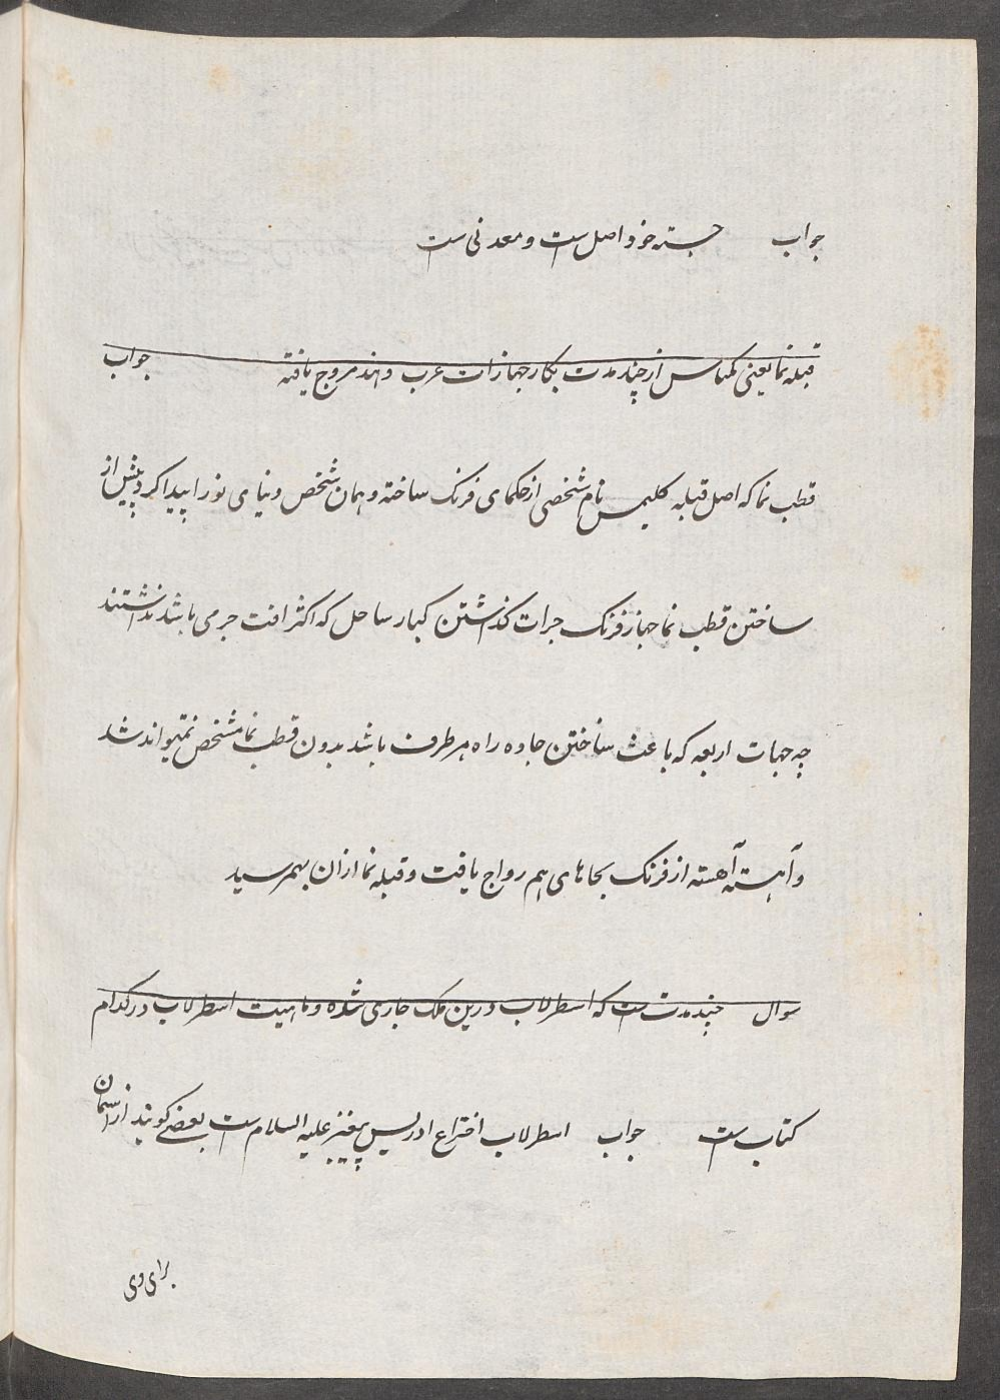 جواب جسته خود اصل ست و معدنی ست
قبله نما یعنی کمپاس از چند مدت بکار جهازات عرب و هند مروج یافته جواب
قطب نما که اصل قبله کلیمس نام شخصی از حکمای فرنک ساخته و همان شخص دنیای نو را پیدا کرد پیش از
ساختن قطب نما جهاز فرنک جرات کذاشتن کنار ساحل که اکثر افت جرمی باشد نداشتند
چه جهات اربعه که باعث ساختن جاده راه هر طرف باشد بدون قطب نما مشخص نمیتواند شد
و آهسته آهسته از فرنک بجاهای هم رواج یافت و قبله نما ازان بهمرسید
سوال چند مدت ست که اسطرلاب درین ملک جاری شده و ماهیت اسطرلاب در کدام
کتاب ست جواب اسطرلاب اختراع ادریس پیغمبر علیه السلام ست بعضی کویند از اسمان
برای وی